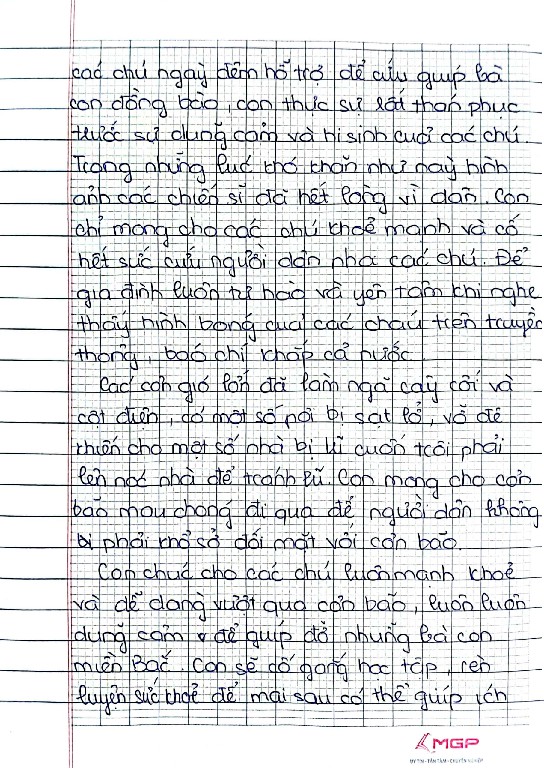 các chú ngày đêm hỗ trợ để cứu giúp bà
con đồng bào, con thực sự rất thán phục
trước sự dũng cảm và hi sinh của các chú.
Trong những lúc khó khăn như này hình
ảnh các chiến sĩ đã hết lòng vì dân. Con
chỉ mong cho các chú khoẻ mạnh và cố
hết sức cứu người dân nha các chú. Để
gia đình luôn tự hào và yên tâm khi nghe
thấy hình bóng của các cháu trên truyền
thông, báo chí khắp cả nước.
Các cơn gió lớn đã làm ngã cây cối và
cột điện, có một số nơi bị sạt lở, vỡ đê
khiến cho một số nhà bị lũ cuốn trôi phải
lên nóc nhà để tránh lũ. Con mong cho cơn
bão mau chóng đi qua để người dân không
bị phải khổ sở đối mặt với cơn bão.
Con chúc cho các chú luôn mạnh khoẻ
và dễ dàng vượt qua cơn bão, luôn luôn
dũng cảm để giúp đỡ những bà con
miền Bắc. Con sẽ cố gắng học tập, rèn
luyện sức khoẻ để mai sau có thể giúp ích
MGP
UY TÍN - TẬN TÂM - CHUYÊN NGHIỆP